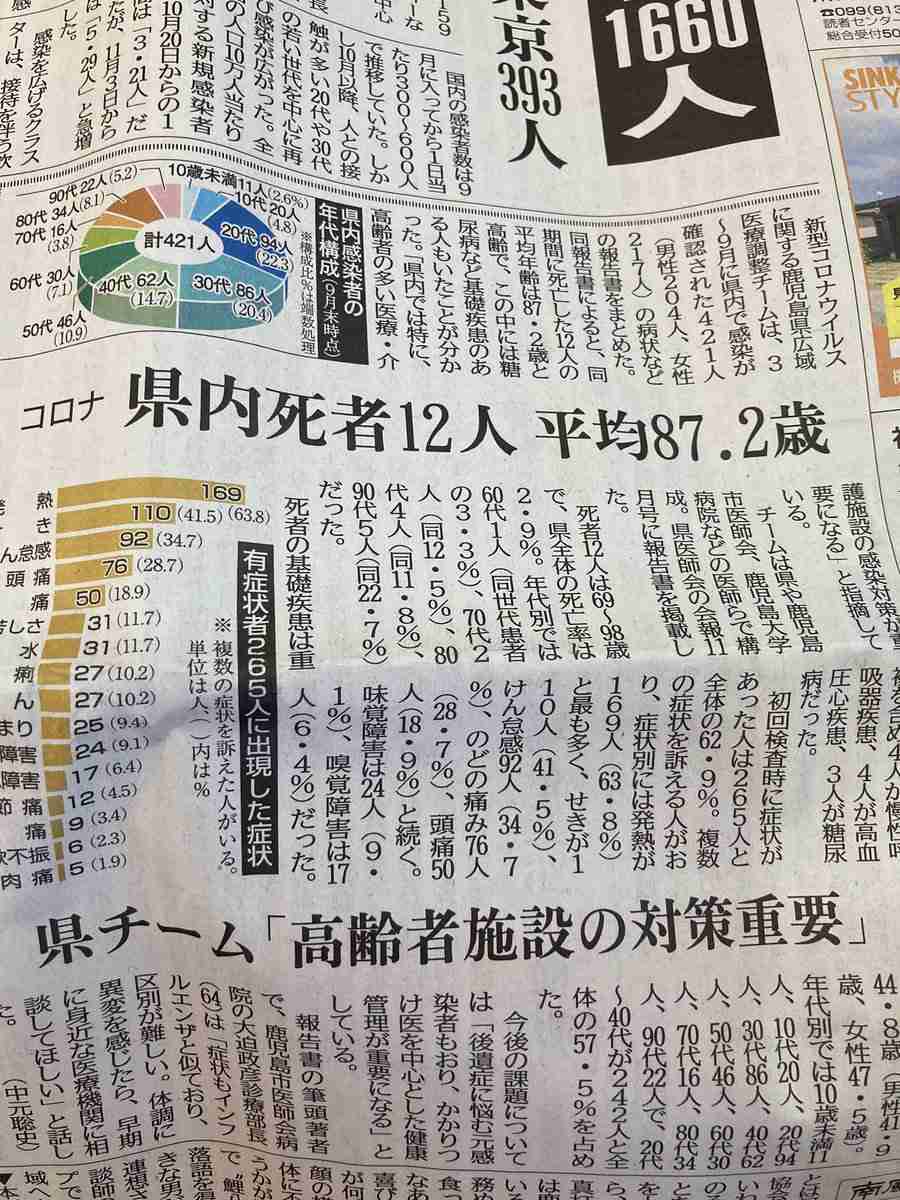 1660人
東京393人
国内の感染者数は9
月に入ってから1日当
たり300〜600人
で推移していた。しか
し10月以降、人との接
触が多い20代や30代
の若い世代を中心に再
び感染が広がった。全
の人口10万人当たり
対する新規感染者
10月20日からの1
は「3・21人」だ
たが、11月3日から
「5・29人」と急増
した。
感染を広げるクラス
ターは、接待を伴う飲
新型コロナウイルス
に関する鹿児島県広域
医療調整チームは、3
〜9月に県内で感染が
確認された421人
(男性204人、女性
217人)の病状など
の報告書をまとめた。
同報告書によると、同
期間に死亡した12人の
平均年齢は87・2歳と
高齢で、この中には糖
尿病など基礎疾患のあ
る人もいたことが分か
った。「県内では特に、
高齢者の多い医療・介
県内感染者の
年代構成(9月末時点)
※構成比%は端数処理
計421人
10歳未満11人(2.6%)
10代 20人(4.8)
20代 94人(22.3)
30代 86人(20.4)
40代 62人(14.7)
50代 46人(10.9)
60代 30人(7.1)
70代 16人(3.8)
80代 34人(8.1)
90代 22人(5.2)
コロナ 県内死者12人 平均87.2歳
護施設の感染対策が重
要になる」と指摘して
いる。
チームは県や鹿児島
市医師会、鹿児島大学
病院などの医師らで構
成。県医師会の会報11
月号に報告書を掲載し
た。
死者12人は69〜98歳
で、県全体の死亡率は
2・9%。年代別では
60代1人(同世代患者
の3・3%)、70代2
人(同12・5%)、80
代4人(同11・8%)、
90代5人(同22・7%)
だった。
死者の基礎疾患は重
吸器疾患、4人が高血
圧心疾患、3人が糖尿
病だった。
初回検査時に症状が
あった人は265人と
全体の62・9%。複数
の症状を訴える人がお
り、症状別には発熱が
169人(63・8%)
と最も多く、せきが1
10人(41・5%)、
けん怠感92人(34・7
%)、のどの痛み76人
(28・7%)、頭痛50
人(18・9%)と続く。
味覚障害は24人(9・
1%)、嗅覚障害は17
人(6・4%)だった。
有症状者265人に出現した症状
※ 複数の症状を訴えた人がいる。
単位は人、( )内は%
熱 169 (63.8)
き 110 (41.5)
ん怠感 92 (34.7)
頭痛 76 (28.7)
痛 50 (18.9)
苦しさ 31 (11.7)
水 31 (11.7)
痢 27 (10.2)
ん 27 (10.2)
まり 25 (9.4)
障害 24 (9.1)
障害 17 (6.4)
節痛 12 (4.5)
痛 9 (3.4)
欲不振 6 (2.3)
肉痛 5 (1.9)
県チーム「高齢者施設の対策重要」
44・8歳(男性41・9
歳、女性47・5歳)。
年代別では10歳未満11
人、10代20人、20代94
人、30代86人、40代62
人、50代46人、60代30
人、70代16人、80代34
人、90代22人で、20代
〜40代が242人と全
体の57・5%を占め
た。
今後の課題について
は「後遺症に悩む元感
染者もおり、かかりつ
け医を中心とした健康
管理が重要になる」と
している。
報告書の筆頭著者
で、鹿児島市医師会病
院の大迫政彦診療部長
(64)は「症状もインフ
ルエンザと似ており、
区別が難しい。体調に
異変を感じたら、早期
に身近な医療機関に相
談してほしい」と話し
た。 (中元聡史)
☎099(813
読者センター
総合受付50
SINK
STY